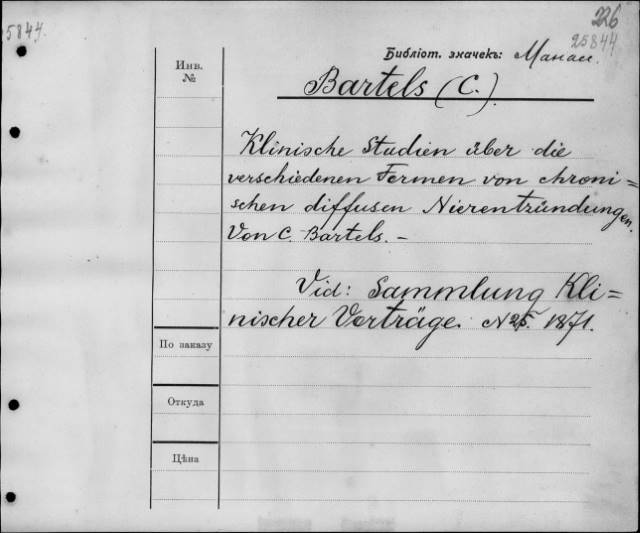 226
5844.
25844
Библіот. значекъ: Манас.
Инв.
№
Bartels (C.).
Klinische Studien über die
verschiedenen Formen von chroni=
schen diffusen Nierentzündungen.
Von C. Bartels. –
Vid: Sammlung Kli=
nischer Vorträge. N 25. 1871.
По заказу
Откуда
Цѣна